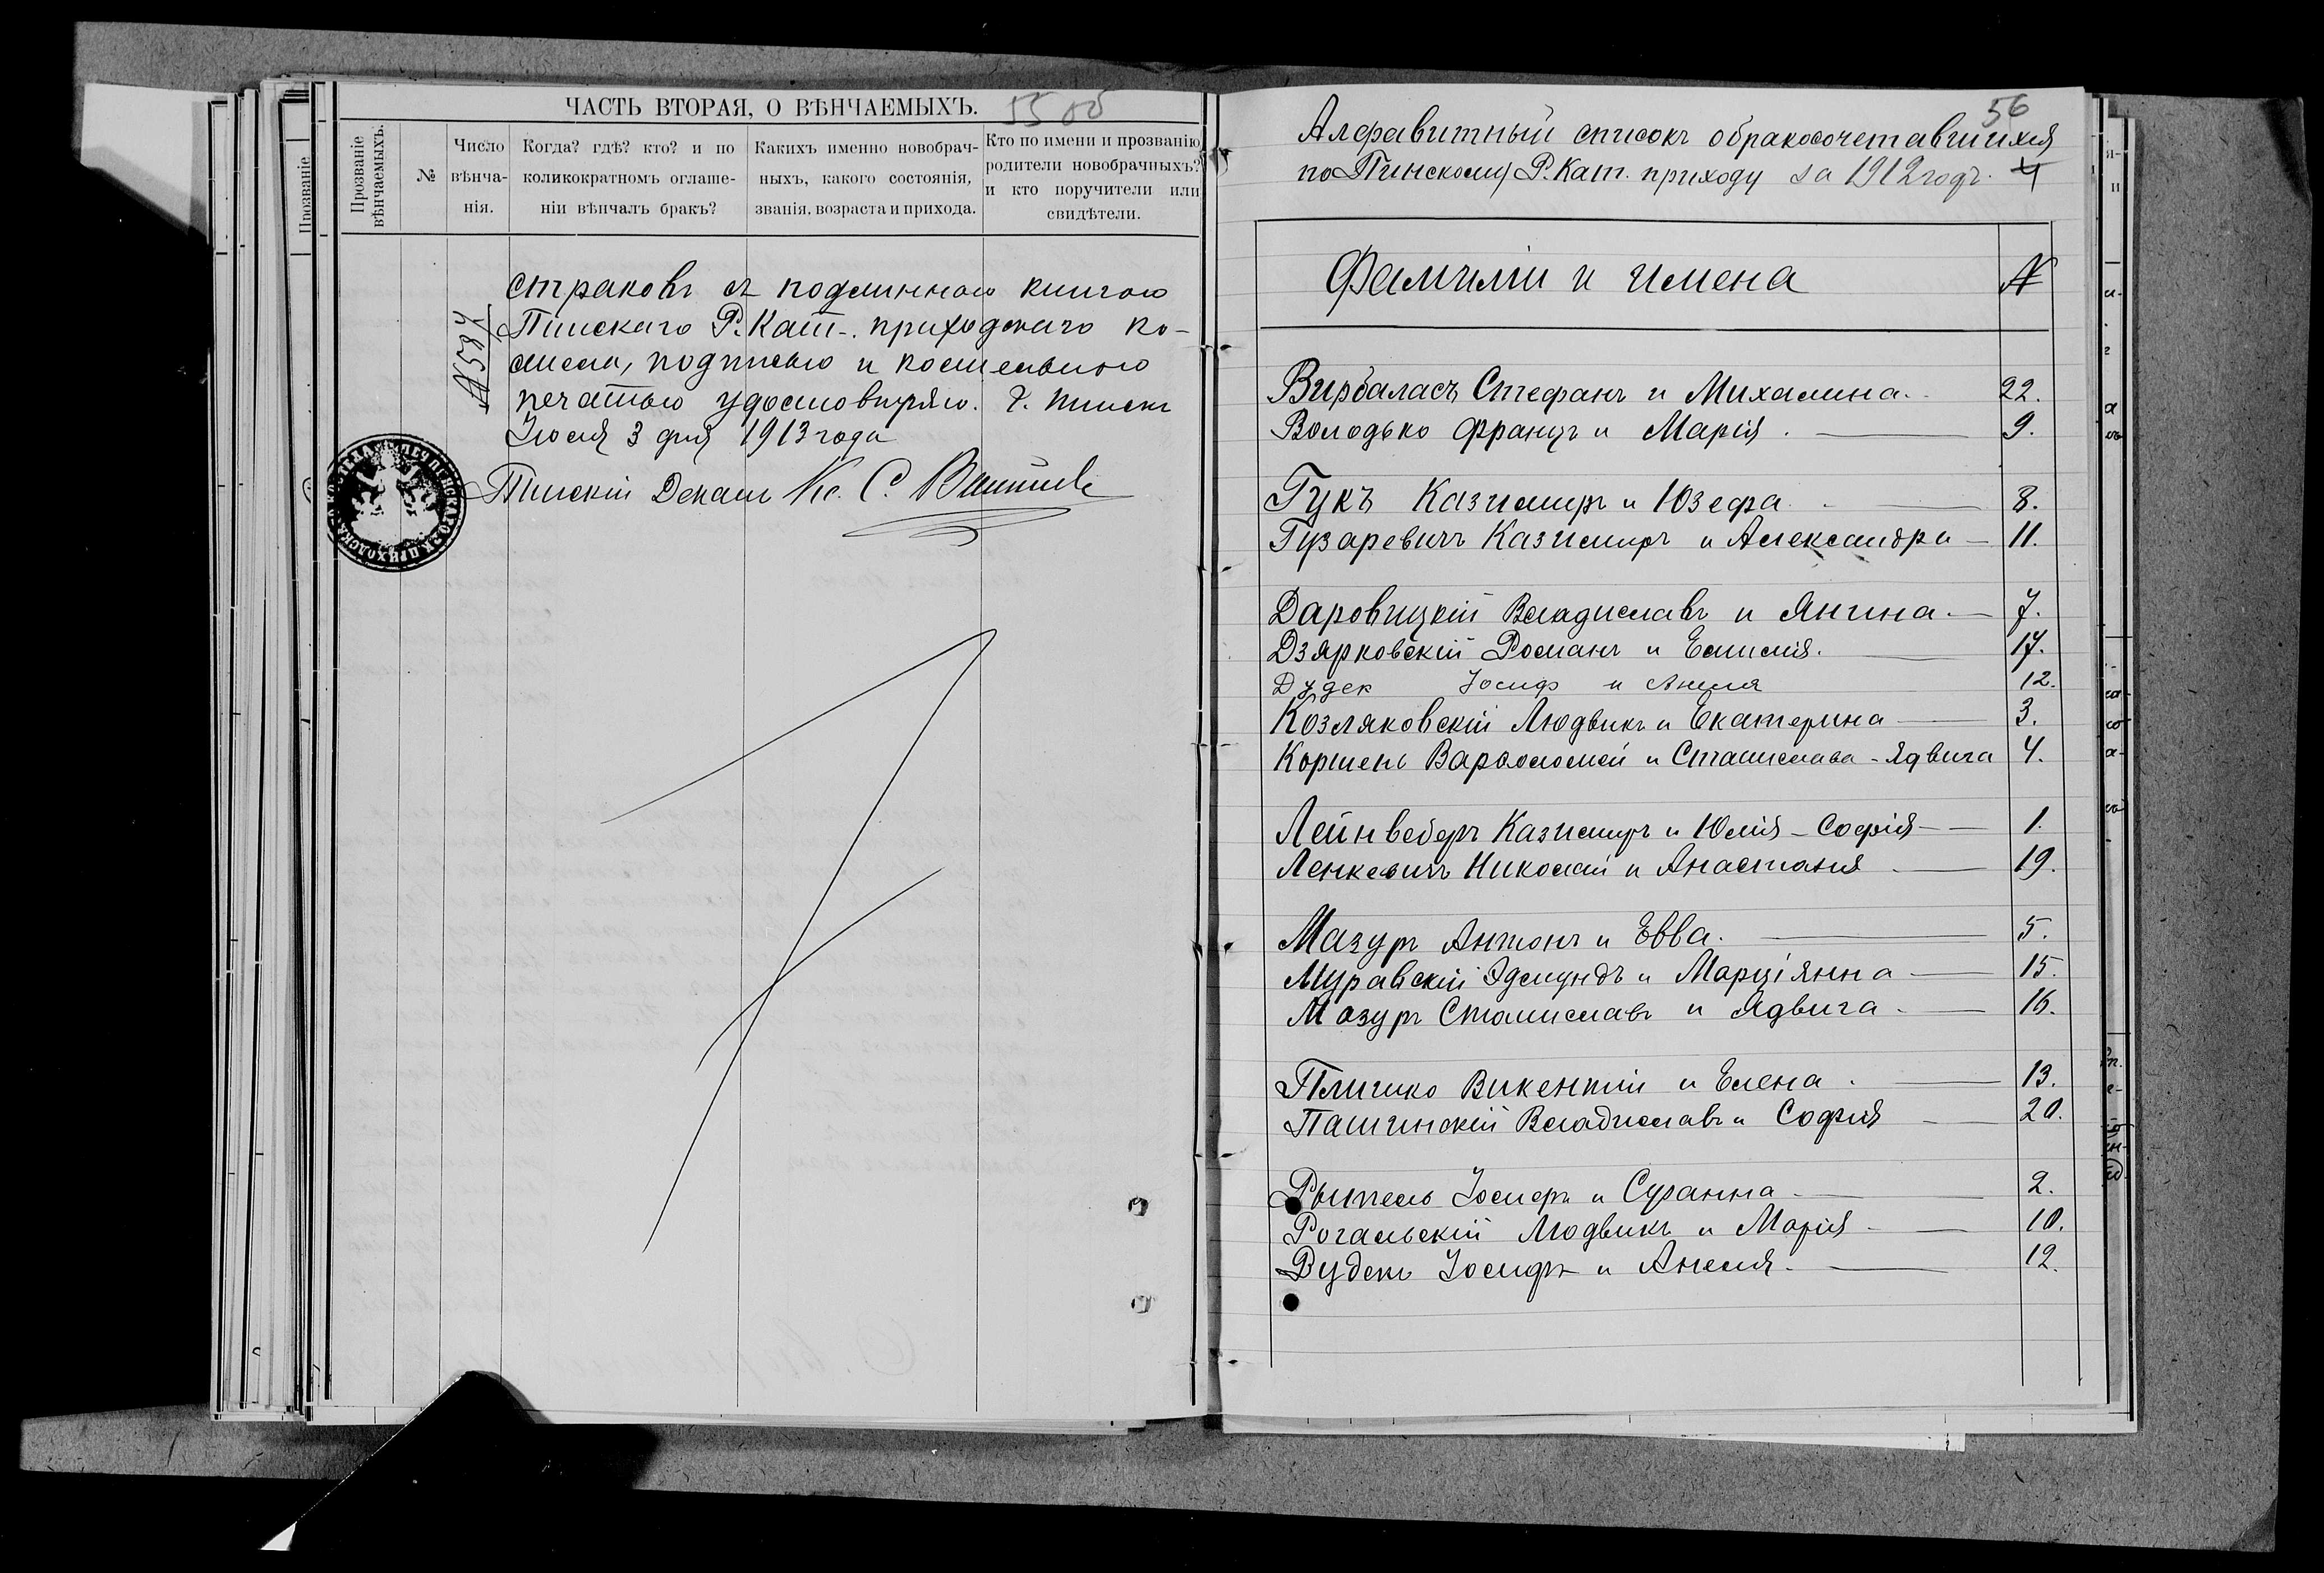 ЧАСТЬ ВТОРАЯ, О ВѢНЧАЕМЫХЪ.
55 об
Прозваніе
Прозваніе вѣнчаемыхъ.
№
Число вѣнча-нія.
Когда? гдѣ? кто? и по коликократномъ оглаше-ніи вѣнчалъ бракъ?
Какихъ именно новобрач-ныхъ, какого состоянія, званія, возраста и прихода.
Кто по имени и прозванію родители новобрачныхъ? и кто поручители или свидѣтели.
страковъ съ подлинною книгою
Пинскаго Р. Кат. приходскаго ко-
стела, подписью и костельною
печатью удостовѣряю. Г. Пинскъ
Іюля 3 дня 1913 года
№ 584
Пинскій Деканъ Кс. С.
56
Алфавитный списокъ обракосочетавшихся
по Пинскому Р. Кат. приходу за 1912 годъ.
Фамиліи и имена
№
Вирбаласъ Стефанъ и Михалина. 22.
Володько Францъ и Марія. 9.
Гукъ Казимиръ и Юзефа 8.
Гузаревичъ Казимиръ и Александра 11.
Даровицкій Владиславъ и Янина 7.
Дзярковскій Романъ и Емилія. 17.
Дудек Іосиф и Анеля 12.
Козляковскій Людвикъ и Екатерина 3.
Коршень Варѳоломей и Станислава-Ядвига 4.
Лейнвеберъ Казимиръ и Юлія-Софія 1.
Ленкевичъ Николай и Анастазія 19.
Мазуръ Антонъ и Евва. 5.
Муравскій Эдмундъ и Марціянна 15.
Мазуръ Станиславъ и Ядвига. 16.
Пличко Викентій и Елена. 13.
Пашинскій Владиславъ и Софія 20.
Рытель Іосифъ и Сузанна 2.
Рогальскій Людвикъ и Марія 10.
Рудекъ Іосифъ и Анеля. 12.